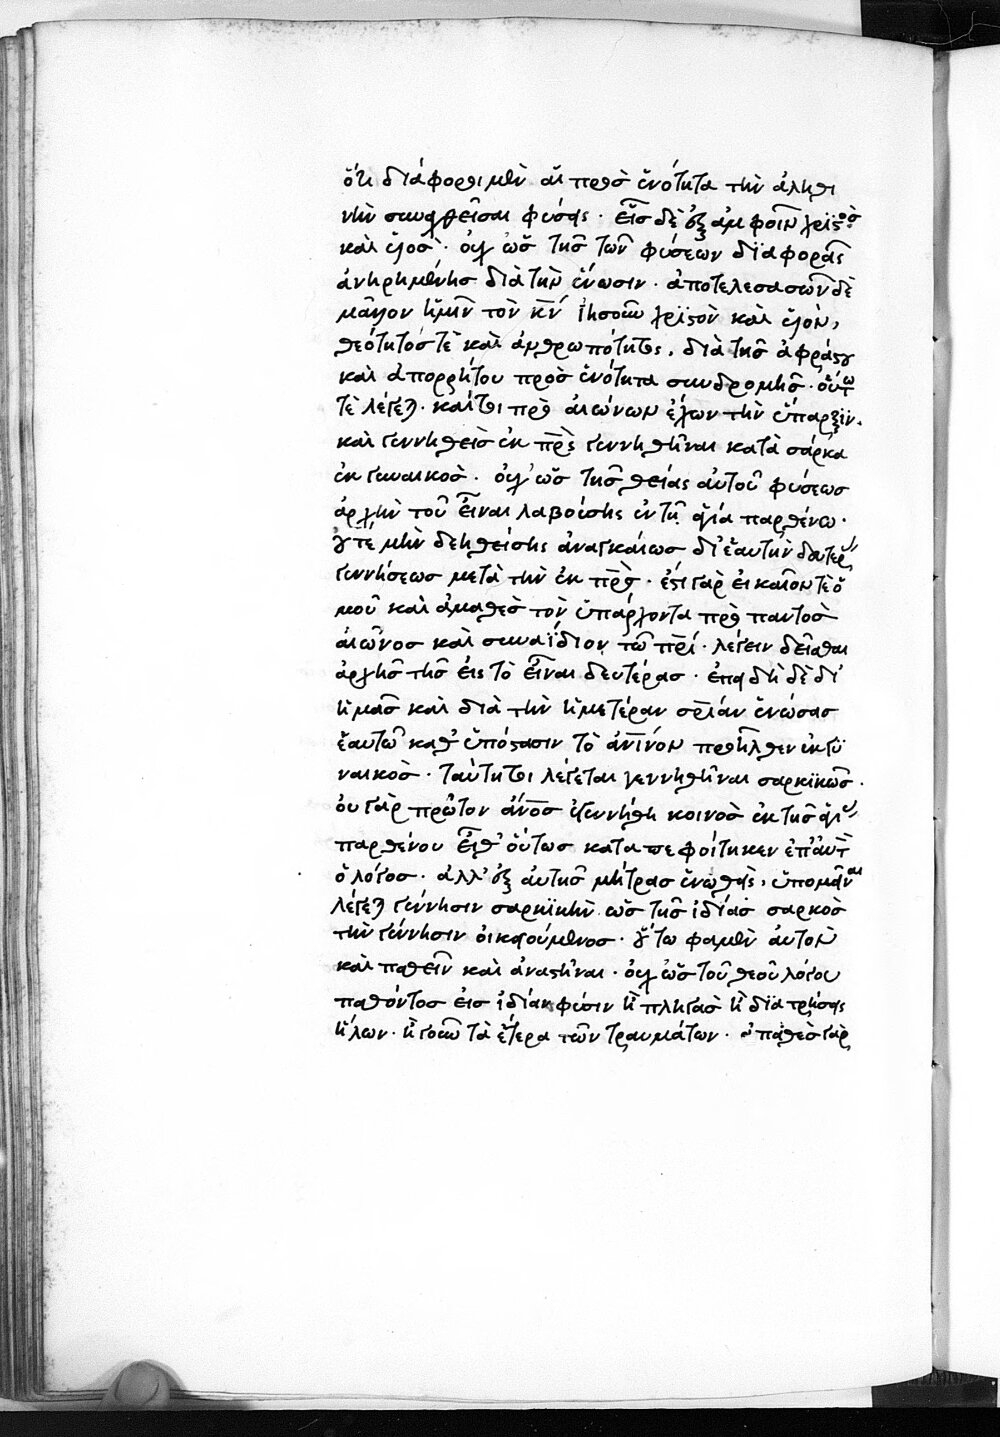 ὅτι διάφοροι μὲν αἱ πρὸς ἑνότητα τὴν ἀληθι
νὴν συναχθεῖσαι φύσεις· εἷς δὲ ἐξ ἀμφοῖν χριστὸς
καὶ υἱὸς· οὐχ ὡς τῆς τῶν φύσεων διαφορᾶς
ἀνηρημένης διὰ τὴν ἕνωσιν· ἀποτελεσασῶν δὲ
μᾶλλον ἡμῖν τὸν κν ἰησοῦν χριστὸν καὶ υἱὸν,
θεότητός τὲ καὶ ἀνθρωπότητος, διὰ τῆς ἀφράστου
καὶ ἀπορρήτου πρὸς ἑνότητα συνδρομῆς· οὕτω
τὲ λέγεται· καίτοι πρὸ αἰώνων ἔχων τὴν ὕπαρξιν·
καὶ γεννηθεὶς ἐκ πρς γεννηθῆναι κατὰ σάρκα
ἐκ γυναικὸς· οὐχ ὡς τῆς θείας αὐτοῦ φύσεως
ἀρχὴν τοῦ εἶναι λαβούσης ἐν τῇ ἁγία παρθένω·
οὔτε μὴν δεηθείσης ἀναγκαίως δι' ἑαυτὴν δευτέρας
γεννήσεως μετὰ τὴν ἐκ πρς· ἔστι γὰρ εἰκαῖον τὲ ὁ
μοῦ καὶ ἀμαθὲς τὸν ὑπάρχοντα πρὸ παντὸς
αἰῶνος καὶ συναΐδιον τῶ πρί· λέγειν δεῖσθαι
ἀρχῆς τῆς εἰς τὸ εἶναι δευτέρας· ἐπειδὴ δὲ δι'
ἡμᾶς καὶ διὰ τὴν ἡμετέραν σρίαν ἑνώσας
ἑαυτῶ καθ' ὑπόστασιν τὸ ἀνινον προῆλθεν ἐκ γυ
ναικὸς· ταύτητοι λέγεται γεννηθῆναι σαρκικῶς·
οὐ γὰρ πρῶτον ἀνος ἐγεννήθη κοινὸς ἐκ τῆς ἁγίας
παρθένου εἶθ' οὕτως καταπεφοίτηκεν ἐπ' αὐτὸν
ὁ λόγος· ἀλλ' ἐξ αὐτῆς μήτρας ἑνωθεὶς, ὑπομεῖναι
λέγεται γέννησιν σαρκικὴν ὡς τῆς ἰδίας σαρκὸς
τὴν γέννησιν οἰκειούμενος· οὕτω φαμὲν αὐτὸν
καὶ παθεῖν καὶ ἀναστῆναι· οὐχ ὡς τοῦ θεοῦ λόγου
παθόντος εἰς ἰδίαν φύσιν ἢ πληγὰς ἢ διατρήσεις
ἥλων· ἢ γοῦν τὰ ἕτερα τῶν τραυμάτων· ἀπαθὲς γὰρ